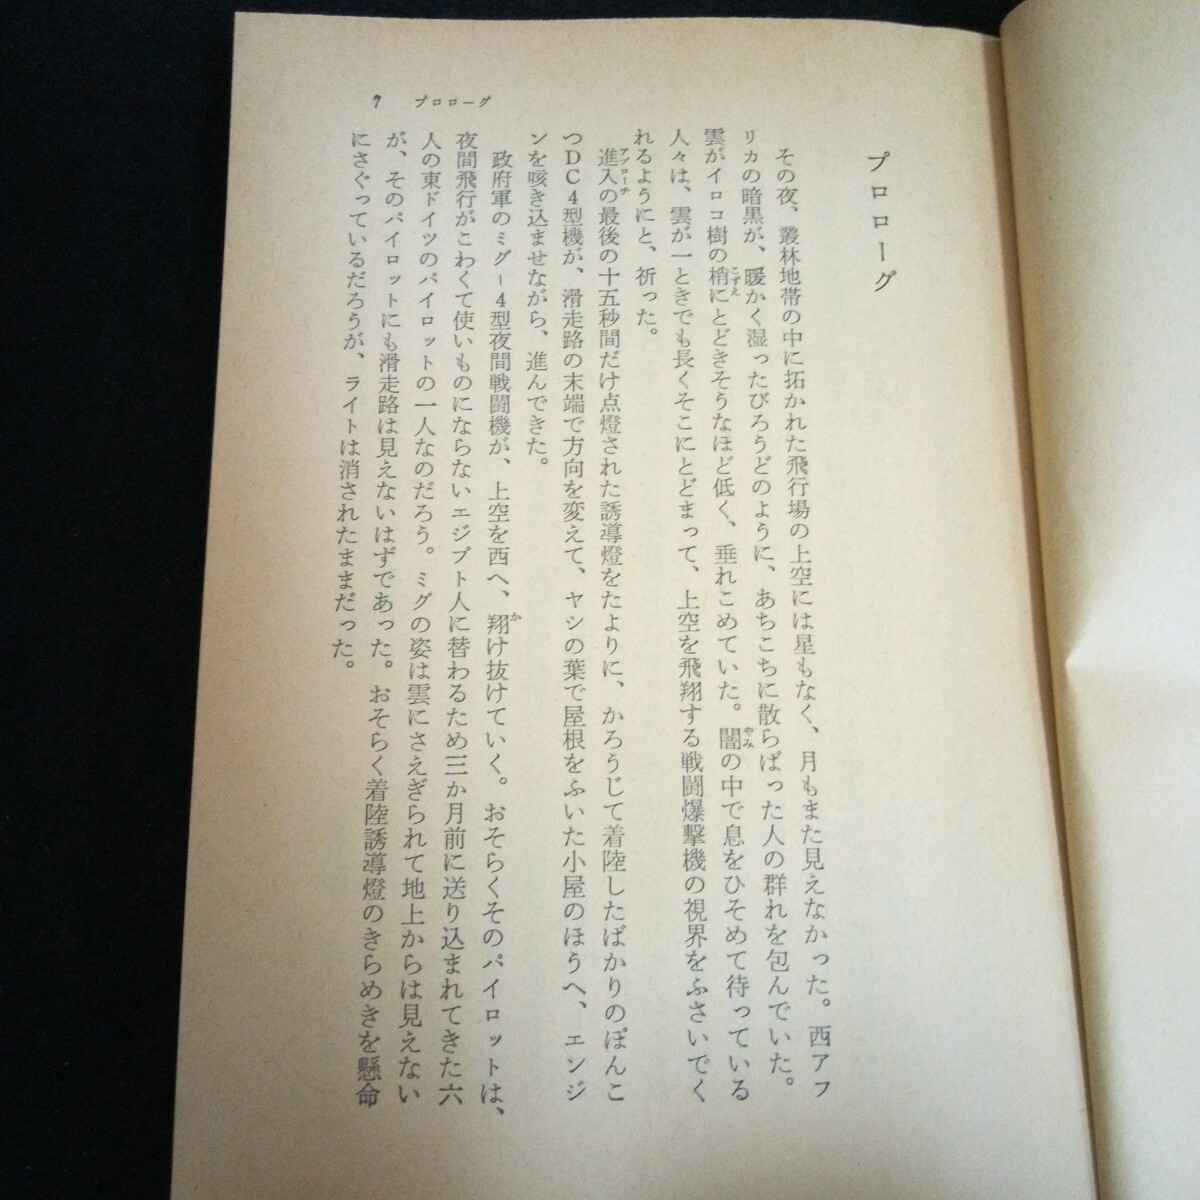 7　プロローグ
プロローグ
その夜、叢林地帯の中に拓かれた飛行場の上空には星もなく、月もまた見えなかった。西アフ
リカの暗黒が、暖かく湿ったびろうどのように、あちこちに散らばった人の群れを包んでいた。
雲がイロコ樹の梢にとどきそうなほど低く、垂れこめていた。闇の中で息をひそめて待っている
人々は、雲が一ときでも長くそこにとどまって、上空を飛翔する戦闘爆撃機の視界をふさいでく
れるようにと、祈った。
進入の最後の十五秒間だけ点燈された誘導燈をたよりに、かろうじて着陸したばかりのぽんこ
つDC4型機が、滑走路の末端で方向を変えて、ヤシの葉で屋根をふいた小屋のほうへ、エンジ
ンを咳き込ませながら、進んできた。
政府軍のミグ-4型夜間戦闘機が、上空を西へ、翔け抜けていく。おそらくそのパイロットは、
夜間飛行がこわくて使いものにならないエジプト人に替わるため三か月前に送り込まれてきた六
人の東ドイツのパイロットの一人なのだろう。ミグの姿は雲にさえぎられて地上からは見えない
が、そのパイロットにも滑走路は見えないはずであった。おそらく着陸誘導燈のきらめきを懸命
にさぐっているだろうが、ライトは消されたままだった。
こずえ
やみ
アプローチ
か